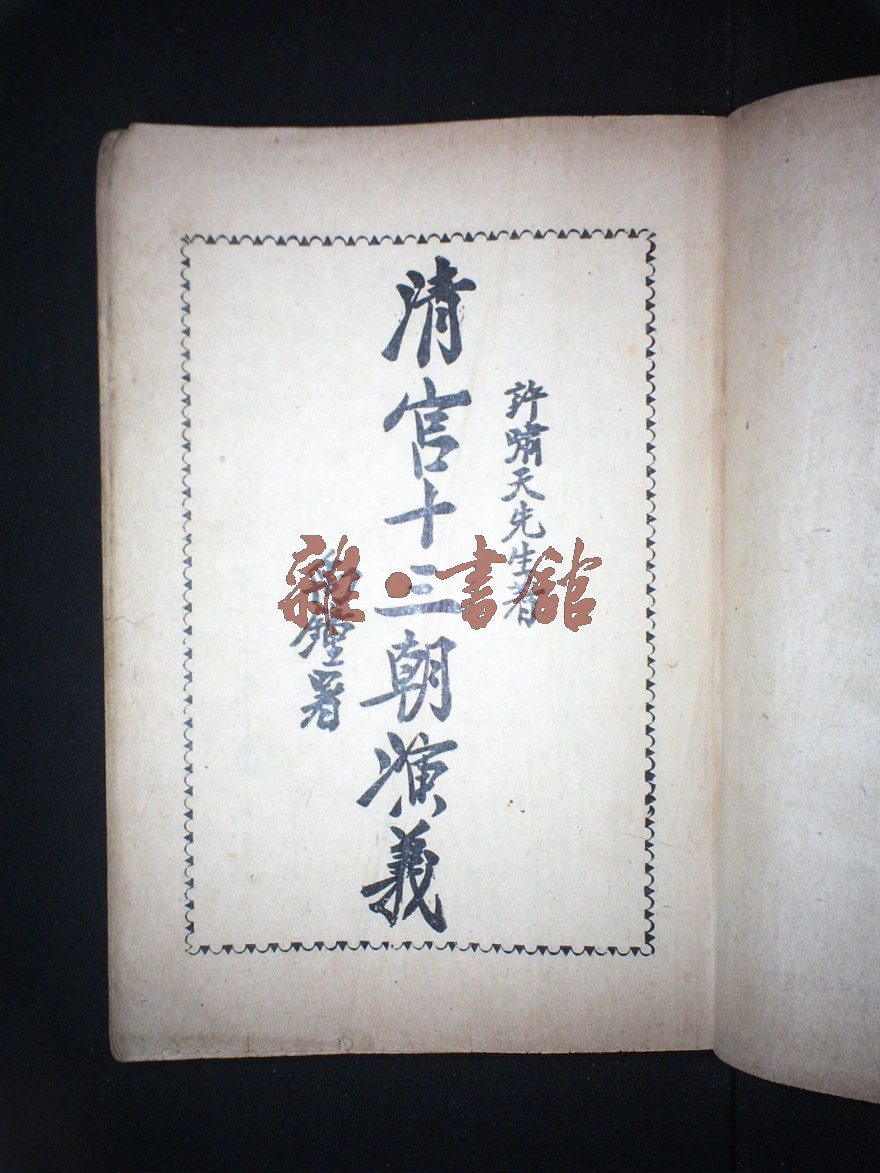 許嘯天先生著
清宮十三朝演義
鏗署
雜·書館